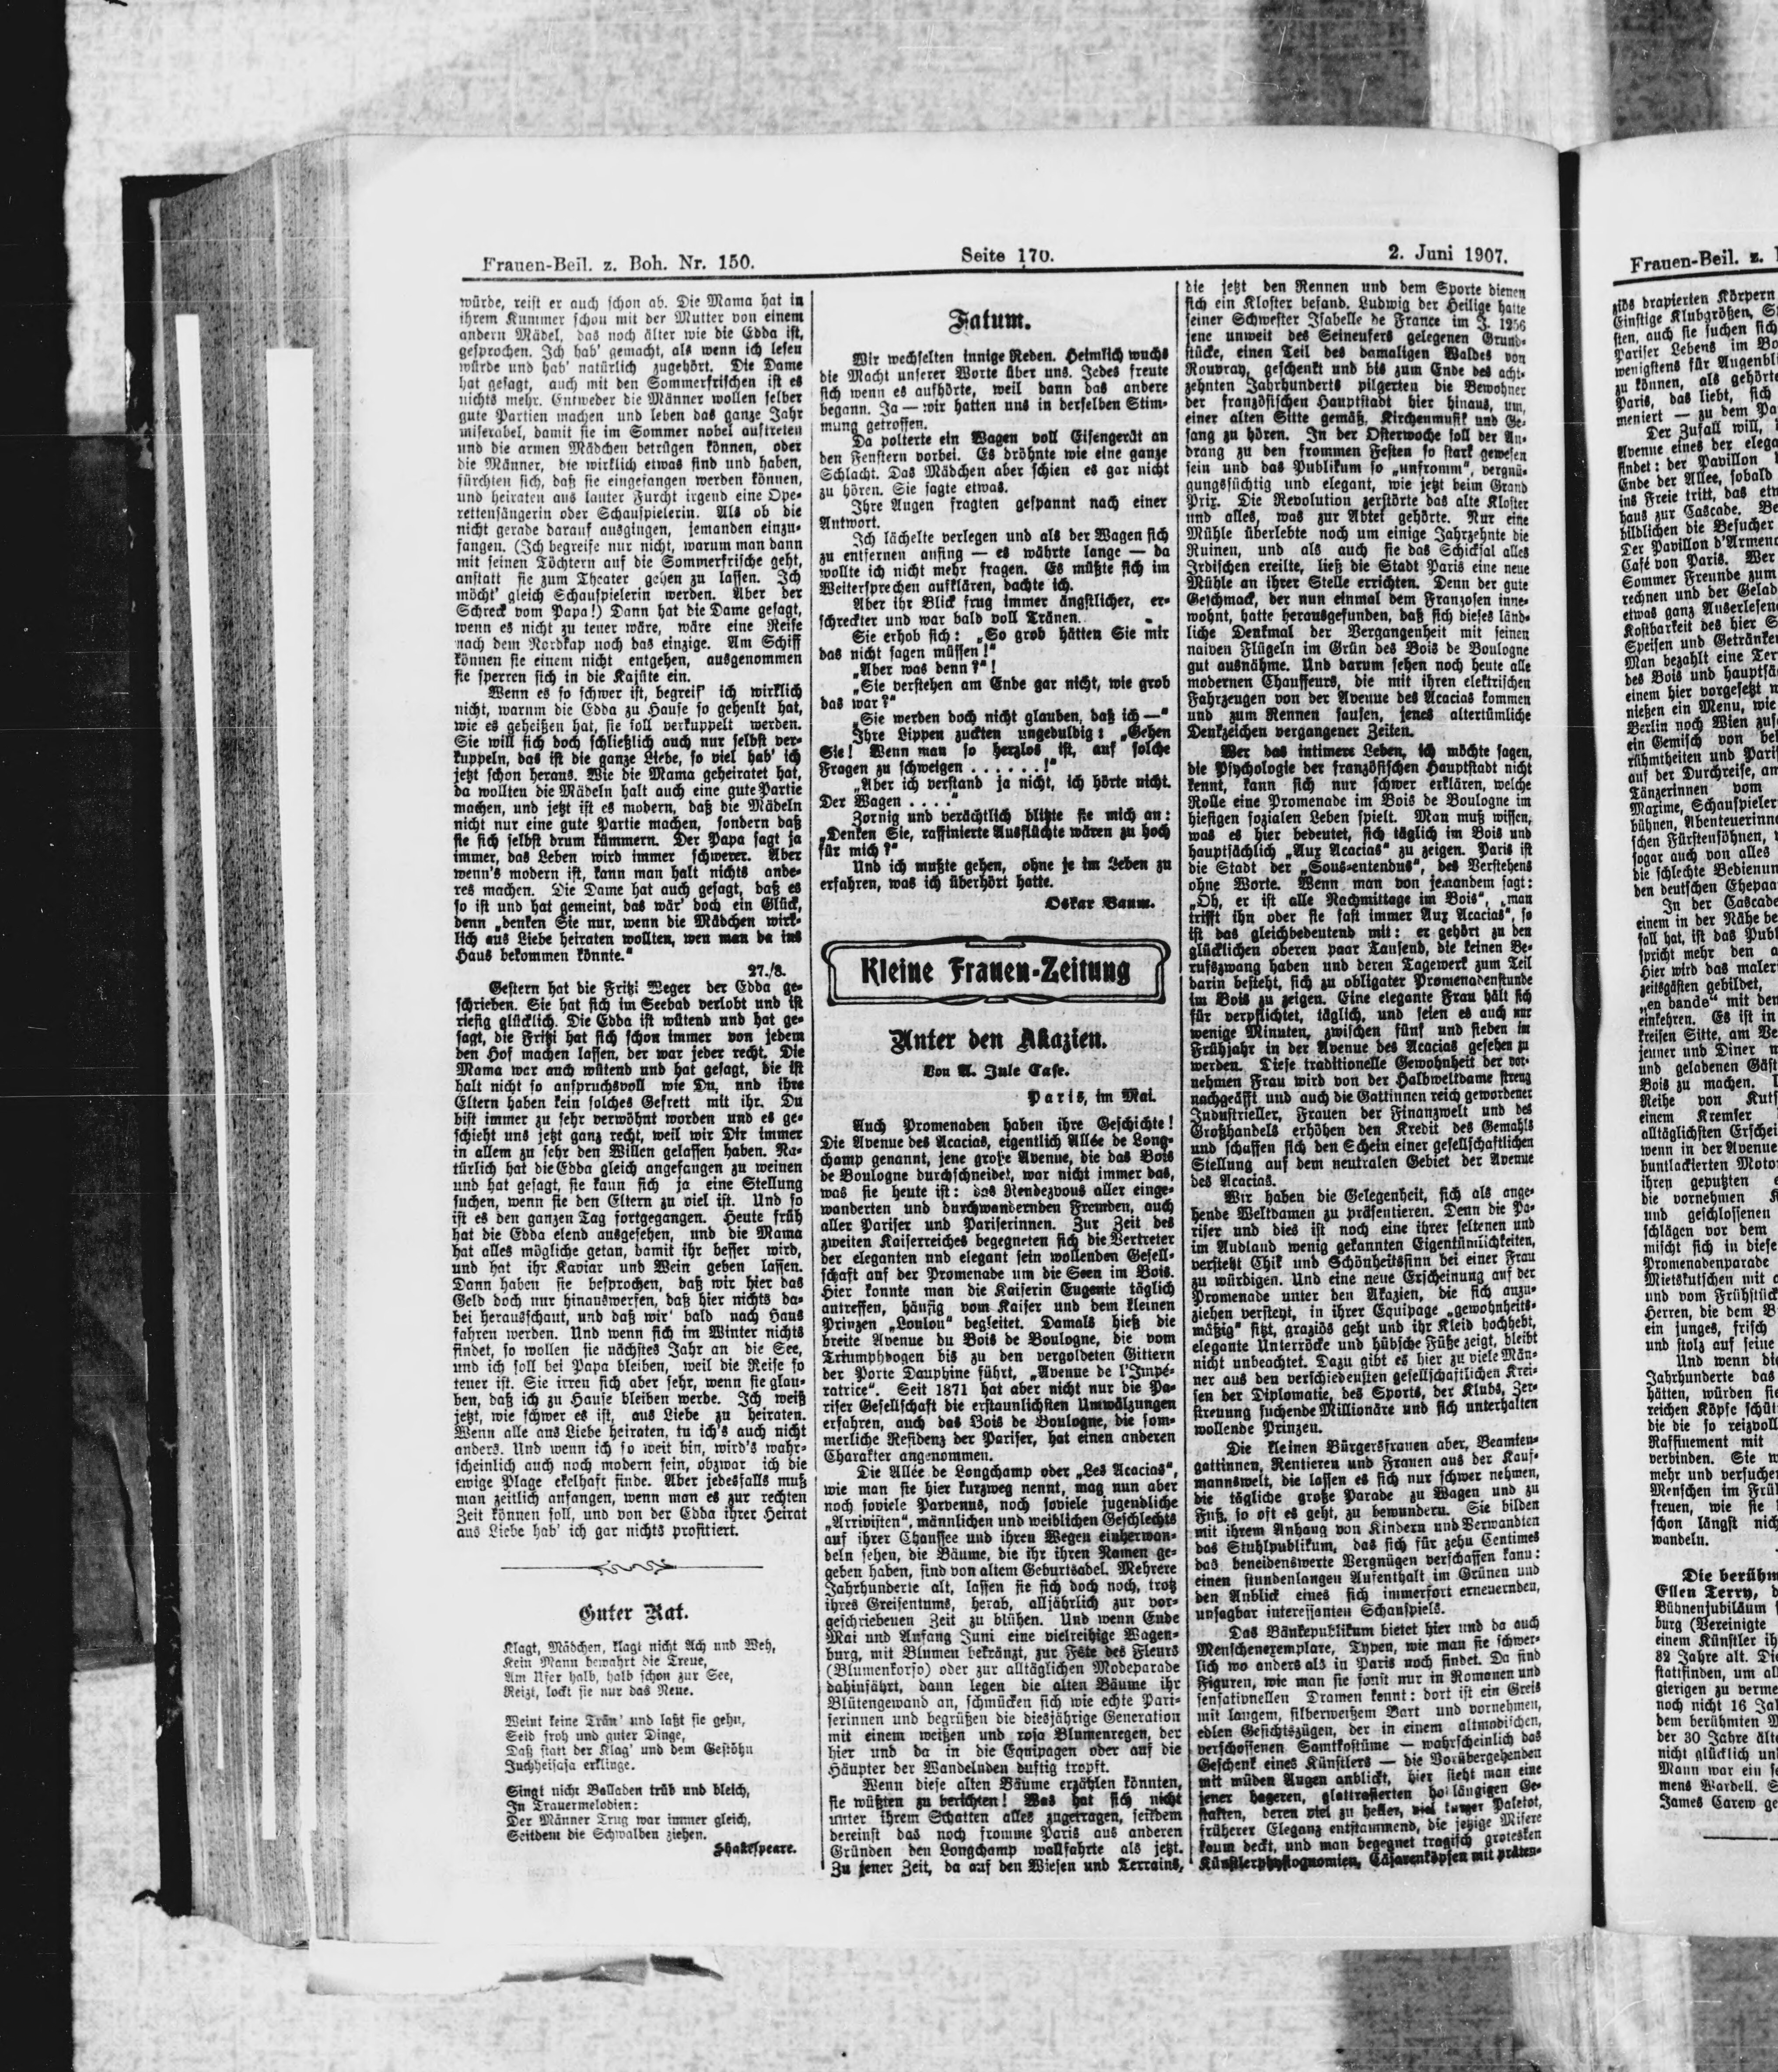 Frauen-Beil. z. Boh. Nr. 150.
Seite 170.
2. Juni 1907.
würde, reist er auch schon ab. Die Mama hat in
ihrem Kummer schon mit der Mutter von einem
andern Mädel, das noch älter wie die Edda ist,
gesprochen. Ich hab' gemacht, als wenn ich lesen
würde und hab' natürlich zugehört. Die Dame
hat gesagt, auch mit den Sommerfrischen ist es
nichts mehr. Entweder die Männer wollen selber
gute Partien machen und leben das ganze Jahr
miserabel, damit sie im Sommer nobel auftreten
und die armen Mädchen betrügen können, oder
die Männer, die wirklich etwas sind und haben,
fürchten sich, daß sie eingefangen werden können,
und heiraten aus lauter Furcht irgend eine Ope-
rettensängerin oder Schauspielerin. Als ob die
nicht gerade darauf ausgingen, jemanden einzu-
fangen. (Ich begreife nur nicht, warum man dann
mit seinen Töchtern auf die Sommerfrische geht,
anstatt sie zum Theater gehen zu lassen. Ich
möcht' gleich Schauspielerin werden. Aber der
Schreck vom Papa!) Dann hat die Dame gesagt,
wenn es nicht zu teuer wäre, wäre eine Reise
nach dem Nordkap noch das einzige. Am Schiff
können sie einem nicht entgehen, ausgenommen
sie sperren sich in die Kajüte ein.
Wenn es so schwer ist, begreif' ich wirklich
nicht, warum die Edda zu Hause so geheult hat,
wie es geheißen hat, sie soll verkuppelt werden.
Sie will sich doch schließlich auch nur selbst ver-
kuppeln, das ist die ganze Liebe, so viel hab' ich
jetzt schon heraus. Wie die Mama geheiratet hat,
da wollten die Mädeln halt auch eine gute Partie
machen, und jetzt ist es modern, daß die Mädeln
nicht nur eine gute Partie machen, sondern daß
sie sich selbst drum kümmern. Der Papa sagt ja
immer, das Leben wird immer schwerer. Aber
wenn's modern ist, kann man halt nichts ande-
res machen. Die Dame hat auch gesagt, daß es
so ist und hat gemeint, das wär' doch ein Glück,
denn „denken Sie nur, wenn die Mädchen wirk-
lich aus Liebe heiraten wollten, wen man da ins
Haus bekommen könnte."
27./8.
Gestern hat die Fritzi Weger der Edda ge-
schrieben. Sie hat sich im Seebad verlobt und ist
riesig glücklich. Die Edda ist wütend und hat ge-
sagt, die Fritzi hat sich schon immer von jedem
den Hof machen lassen, der war jeder recht. Die
Mama war auch wütend und hat gesagt, die ist
halt nicht so anspruchsvoll wie Du, und ihre
Eltern haben kein solches Gefrett mit ihr. Du
bist immer zu sehr verwöhnt worden und es ge-
schieht uns jetzt ganz recht, weil wir Dir immer
in allem zu sehr den Willen gelassen haben. Na-
türlich hat die Edda gleich angefangen zu weinen
und hat gesagt, sie kann sich ja eine Stellung
suchen, wenn sie den Eltern zu viel ist. Und so
ist es den ganzen Tag fortgegangen. Heute früh
hat die Edda elend ausgesehen, und die Mama
hat alles mögliche getan, damit ihr besser wird,
und hat ihr Kaviar und Wein geben lassen.
Dann haben sie besprochen, daß wir hier das
Geld doch nur hinauswerfen, daß hier nichts da-
bei herausschaut, und daß wir' bald nach Haus
fahren werden. Und wenn sich im Winter nichts
findet, so wollen sie nächstes Jahr an die See,
und ich soll bei Papa bleiben, weil die Reise so
teuer ist. Sie irren sich aber sehr, wenn sie glau-
ben, daß ich zu Hause bleiben werde. Ich weiß
jetzt, wie schwer es ist, aus Liebe zu heiraten.
Wenn alle aus Liebe heiraten, tu ich's auch nicht
anders. Und wenn ich so weit bin, wird's wahr-
scheinlich auch noch modern sein, obzwar ich die
ewige Plage ekelhaft finde. Aber jedesfalls muß
man zeitlich anfangen, wenn man es zur rechten
Zeit können soll, und von der Edda ihrer Heirat
aus Liebe hab' ich gar nichts profitiert.
Guter Rat.
Klagt, Mädchen, klagt nicht Ach und Weh,
Kein Mann bewahrt die Treue,
Am Ufer halb, halb schon zur See,
Reizt, lockt sie nur das Neue.
Weint keine Trän' und laßt sie gehn,
Seid froh und guter Dinge,
Daß statt der Klag' und dem Gestöhn
Juchheisasa erklinge.
Singt nicht Balladen trüb und bleich,
In Trauermelodien:
Der Männer Trug war immer gleich,
Seitdem die Schwalben ziehen.
Shakespeare.
Fatum.
Wir wechselten innige Reden. Heimlich wuchs
die Macht unserer Worte über uns. Jedes freute
sich wenn es aufhörte, weil dann das andere
begann. Ja — wir hatten uns in derselben Stim-
mung getroffen.
Da polterte ein Wagen voll Eisengerät an
den Fenstern vorbei. Es dröhnte wie eine ganze
Schlacht. Das Mädchen aber schien es gar nicht
zu hören. Sie sagte etwas.
Ihre Augen fragten gespannt nach einer
Antwort.
Ich lächelte verlegen und als der Wagen sich
zu entfernen anfing — es währte lange — da
wollte ich nicht mehr fragen. Es müßte sich im
Weitersprechen aufklären, dachte ich.
Aber ihr Blick frug immer ängstlicher, er-
schreckter und war bald voll Tränen.
Sie erhob sich: „So grob hätten Sie mir
das nicht sagen müssen!"
„Aber was denn?"!
„Sie verstehen am Ende gar nicht, wie grob
das war?"
„Sie werden doch nicht glauben, daß ich —"
Ihre Lippen zuckten ungeduldig: „Gehen
Sie! Wenn man so herzlos ist, auf solche
Fragen zu schweigen . . . . . .!"
„Aber ich verstand ja nicht, ich hörte nicht.
Der Wagen . . . ."
Zornig und verächtlich blitzte sie mich an:
„Denken Sie, raffinierte Ausflüchte wären zu hoch
für mich?"
Und ich mußte gehen, ohne je im Leben zu
erfahren, was ich überhört hatte.
Oskar Baum.
Kleine Frauen-Zeitung
Unter den Akazien.
Von A. Jule Case.
Paris, im Mai.
Auch Promenaden haben ihre Geschichte!
Die Avenue des Acacias, eigentlich Allée de Long-
champ genannt, jene große Avenue, die das Bois
de Boulogne durchschneidet, war nicht immer das,
was sie heute ist: das Rendezvous aller einge-
wanderten und durchwandernden Fremden, auch
aller Pariser und Pariserinnen. Zur Zeit des
zweiten Kaiserreiches begegneten sich die Vertreter
der eleganten und elegant sein wollenden Gesell-
schaft auf der Promenade um die Seen im Bois.
Hier konnte man die Kaiserin Eugenie täglich
antreffen, häufig vom Kaiser und dem kleinen
Prinzen „Loulou" begleitet. Damals hieß die
breite Avenue du Bois de Boulogne, die vom
Triumphbogen bis zu den vergoldeten Gittern
der Porte Dauphine führt, „Avenue de l'Impé-
ratrice". Seit 1871 hat aber nicht nur die Pa-
riser Gesellschaft die erstaunlichsten Umwälzungen
erfahren, auch das Bois de Boulogne, die som-
merliche Residenz der Pariser, hat einen anderen
Charakter angenommen.
Die Allée de Longchamp oder „Les Acacias",
wie man sie hier kurzweg nennt, mag nun aber
noch soviele Parvenus, noch soviele jugendliche
„Arrivisten", männlichen und weiblichen Geschlechts
auf ihrer Chaussee und ihren Wegen einherwan-
deln sehen, die Bäume, die ihr ihren Namen ge-
geben haben, sind von altem Geburtsadel. Mehrere
Jahrhunderte alt, lassen sie sich doch noch, trotz
ihres Greisentums, herab, alljährlich zur vor-
geschriebenen Zeit zu blühen. Und wenn Ende
Mai und Anfang Juni eine vielreihige Wagen-
burg, mit Blumen bekränzt, zur Fête des Fleurs
(Blumenkorso) oder zur alltäglichen Modeparade
dahinfährt, dann legen die alten Bäume ihr
Blütengewand an, schmücken sich wie echte Pari-
serinnen und begrüßen die diesjährige Generation
mit einem weißen und rosa Blumenregen, der
hier und da in die Equipagen oder auf die
Häupter der Wandelnden duftig tropft.
Wenn diese alten Bäume erzählen könnten,
sie wüßten zu berichten! Was hat sich nicht
unter ihrem Schatten alles zugetragen, seitdem
dereinst das noch fromme Paris aus anderen
Gründen den Longchamp wallfahrte als jetzt.
Zu jener Zeit, da auf den Wiesen und Terrains,
die jetzt den Rennen und dem Sporte dienen
sich ein Kloster befand. Ludwig der Heilige hatte
seiner Schwester Isabelle de France im J. 1256
jene unweit des Seineufers gelegenen Grund-
stücke, einen Teil des damaligen Waldes von
Rouvray, geschenkt und bis zum Ende des acht-
zehnten Jahrhunderts pilgerten die Bewohner
der französischen Hauptstadt hier hinaus, um,
einer alten Sitte gemäß, Kirchenmusik und Ge-
sang zu hören. In der Osterwoche soll der An-
drang zu den frommen Festen so stark gewesen
sein und das Publikum so „unfromm", vergnü-
gungssüchtig und elegant, wie jetzt beim Grand
Prix. Die Revolution zerstörte das alte Kloster
und alles, was zur Abtei gehörte. Nur eine
Mühle überlebte noch um einige Jahrzehnte die
Ruinen, und als auch sie das Schicksal alles
Irdischen ereilte, ließ die Stadt Paris eine neue
Mühle an ihrer Stelle errichten. Denn der gute
Geschmack, der nun einmal dem Franzosen inne-
wohnt, hatte herausgefunden, daß sich dieses länd-
liche Denkmal der Vergangenheit mit seinen
naiven Flügeln im Grün des Bois de Boulogne
gut ausnähme. Und darum sehen noch heute alle
modernen Chauffeurs, die mit ihren elektrischen
Fahrzeugen von der Avenue des Acacias kommen
und zum Rennen sausen, jenes altertümliche
Denkzeichen vergangener Zeiten.
Wer das intimere Leben, ich möchte sagen,
die Psychologie der französischen Hauptstadt nicht
kennt, kann sich nur schwer erklären, welche
Rolle eine Promenade im Bois de Boulogne im
hiesigen sozialen Leben spielt. Man muß wissen,
was es hier bedeutet, sich täglich im Bois und
hauptsächlich „Aux Acacias" zu zeigen. Paris ist
die Stadt der „Sous-entendus", des Verstehens
ohne Worte. Wenn man von jemandem sagt:
„Oh, er ist alle Nachmittage im Bois", „man
trifft ihn oder sie fast immer Aux Acacias", so
ist das gleichbedeutend mit: er gehört zu den
glücklichen oberen paar Tausend, die keinen Be-
rufszwang haben und deren Tagewerk zum Teil
darin besteht, sich zu obligater Promenadenstunde
im Bois zu zeigen. Eine elegante Frau hält sich
für verpflichtet, täglich, und seien es auch nur
wenige Minuten, zwischen fünf und sieben im
Frühjahr in der Avenue des Acacias gesehen zu
werden. Diese traditionelle Gewohnheit der vor-
nehmen Frau wird von der Halbweltdame streng
nachgeäfft und auch die Gattinnen reich gewordener
Industrieller, Frauen der Finanzwelt und des
Großhandels erhöhen den Kredit des Gemahls
und schaffen sich den Schein einer gesellschaftlichen
Stellung auf dem neutralen Gebiet der Avenue
des Acacias.
Wir haben die Gelegenheit, sich als ange-
hende Weltdamen zu präsentieren. Denn die Pa-
riser und dies ist noch eine ihrer seltenen und
im Ausland wenig gekannten Eigentümlichkeiten,
versteht Chik und Schönheitssinn bei einer Frau
zu würdigen. Und eine neue Erscheinung auf der
Promenade unter den Akazien, die sich anzu-
ziehen versteht, in ihrer Equipage „gewohnheits-
mäßig" sitzt, graziös geht und ihr Kleid hochhebt,
elegante Unterröcke und hübsche Füße zeigt, bleibt
nicht unbeachtet. Dazu gibt es hier zu viele Män-
ner aus den verschiedensten gesellschaftlichen Krei-
sen der Diplomatie, des Sports, der Klubs, Zer-
streuung suchende Millionäre und sich unterhalten
wollende Prinzen.
Die kleinen Bürgersfrauen aber, Beamten-
gattinnen, Rentieren und Frauen aus der Kauf-
mannswelt, die lassen es sich nur schwer nehmen,
die tägliche große Parade zu Wagen und zu
Fuß, so oft es geht, zu bewundern. Sie bilden
mit ihrem Anhang von Kindern und Verwandten
das Stuhlpublikum, das sich für zehn Centimes
das beneidenswerte Vergnügen verschaffen kann:
einen stundenlangen Aufenthalt im Grünen und
den Anblick eines sich immerfort erneuernden,
unsagbar interessanten Schauspiels.
Das Bänkepublikum bietet hier und da auch
Menschenexemplare, Typen, wie man sie schwer-
lich wo anders als in Paris noch findet. Da sind
Figuren, wie man sie sonst nur in Romanen und
sensationellen Dramen kennt: dort ist ein Greis
mit langem, silberweißem Bart und vornehmen,
edlen Gesichtszügen, der in einem altmodischen,
verschossenen Samtkostüme — wahrscheinlich das
Geschenk eines Künstlers — die Vorübergehenden
mit müden Augen anblickt, hier sieht man eine
jener hageren, glattrasierten Ge-
stalten, deren viel zu heller, viel kurzer Paletot,
früherer Eleganz entstammend, die jetzige Misere
kaum deckt, und man begegnet tragisch grotesken
Künstlerphysiognomien, Cäsarenköpfen mit präten-
Frauen-Beil. z.
ziös drapierten Körpern
Einstige Klubgrößen,
sten, auch sie suchen sich
Pariser Lebens im
wenigstens für
zu können, als
Paris, das liebt, sich
meniert — zu dem
Der Zufall will,
Avenue eines der
findet: der Pavillon
Ende der Allee, sobald
ins Freie tritt, das
haus zur Cascade.
bildlichen die Besucher
Der Pavillon
Café von Paris. Wer
Sommer Freunde zum
rechnen und der
etwas ganz
Kostbarkeit des hier
Speisen und
Man bezahlt eine
des Bois und
einem hier vorgesetzt
nießen ein Menu, wie
Berlin noch Wien
ein Gemisch von
rühmtheiten und
auf der Durchreise,
Tänzerinnen vom
Maxime, Schauspieler
bühnen,
schen Fürstensöhnen,
sogar auch von alles
die schlechte
den deutschen
In der Cascade
einem in der Nähe
fall hat, ist das
spricht mehr den
Hier wird das
zeitsgästen gebildet,
„en bande" mit
einkehren. Es ist in
kreisen Sitte, am
jeuner und Diner
und geladenen
Bois zu machen.
Reihe von
einem Kremser
alltäglichsten
wenn in der Avenue
buntlackierten
ihren geputzten
die vornehmen
und geschlossenen
schlägen vor dem
mischt sich in
Promenadenparade
Mietskutschen mit
und vom
Herren, die dem
ein junges, frisch
und stolz auf seine
Und wenn die
Jahrhunderte das
hätten, würden sie
reichen Köpfe
die die so reizvoll
Raffinement mit
verbinden. Sie
mehr und
Menschen im
freuen, wie sie
schon längst
wandeln.
Die
Ellen Terry,
Bühnenjubiläum
burg (Vereinigte
einem Künstler
82 Jahre alt.
stattfinden, um
gierigen zu
noch nicht 16
dem berühmten
der 30 Jahre
nicht glücklich
Mann war ein
mens Wardell.
James Carew